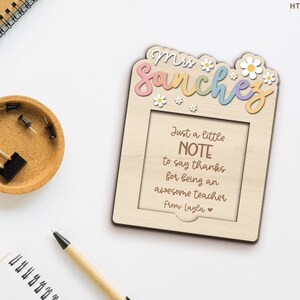 HT
Mrs
Sanchez
Just a little
NOTE
to say thanks
for being an
awesome teacher
From Layla ♥